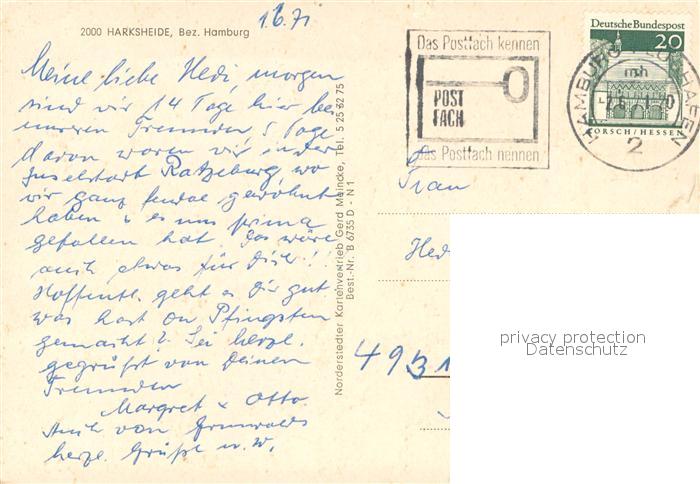 1.6.71
2000 HARKSHEIDE, Bez. Hamburg
Meine liebe Hedi, morgen
sind wir 14 Tage hier bei
unseren Freunden, 5 Tage
davon waren wir in der
Inselstadt Ratzeburg, wo
wir ganz feudal gewohnt
haben & es uns prima
gefallen hat. Das wäre
auch etwas für Dich!!
Hoffentl. geht es Dir gut
was hast Du Pfingsten
gemacht? Sei herzl.
gegrüßt von Deinen
Freunden
Margret & Otto.
Auch von Grunwalds
herzl. Grüße u.w.
Norderstedter Kartenvertrieb Gerd Meincke, Tel. 5 25 52 75
Best.-Nr. B 6735 D - N 1
Das Postfach kennen
POST
FACH
Das Postfach nennen
Deutsche Bundespost
20
LORSCH/HESSEN
HAMBURG
mh
2
Frau
Hedi
4931
privacy protection
Datenschutz